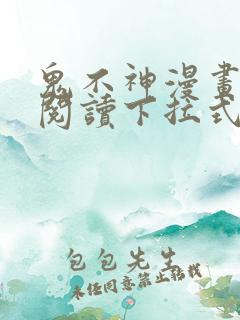 鬼不神漫畫
閱讀下拉式
包包先生
未經同意禁止轉載